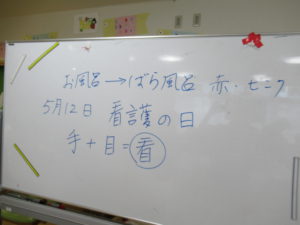 お風呂→ばら風呂 赤・ピンク
5月12日 看護の日
手+目=看